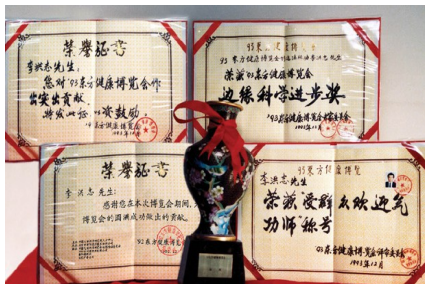 荣誉证书
李洪志先生:
您对'93东方健康博览会作
出突出贡献,
特发此证,以资鼓励
'93东方健康博览会
1993年12月
荣获'93东方健康博览会
边缘科学进步奖
'93东方健康博览会
1993年12月
荣誉证书
李洪志先生:
感谢您在本次博览会期间,
博览会的圆满成功做出的贡献。
'93东方健康博览会
'93东方健康博览
李洪志先生
荣获"受群众欢迎气
功师"称号
'93东方健康博览会
1993年12月